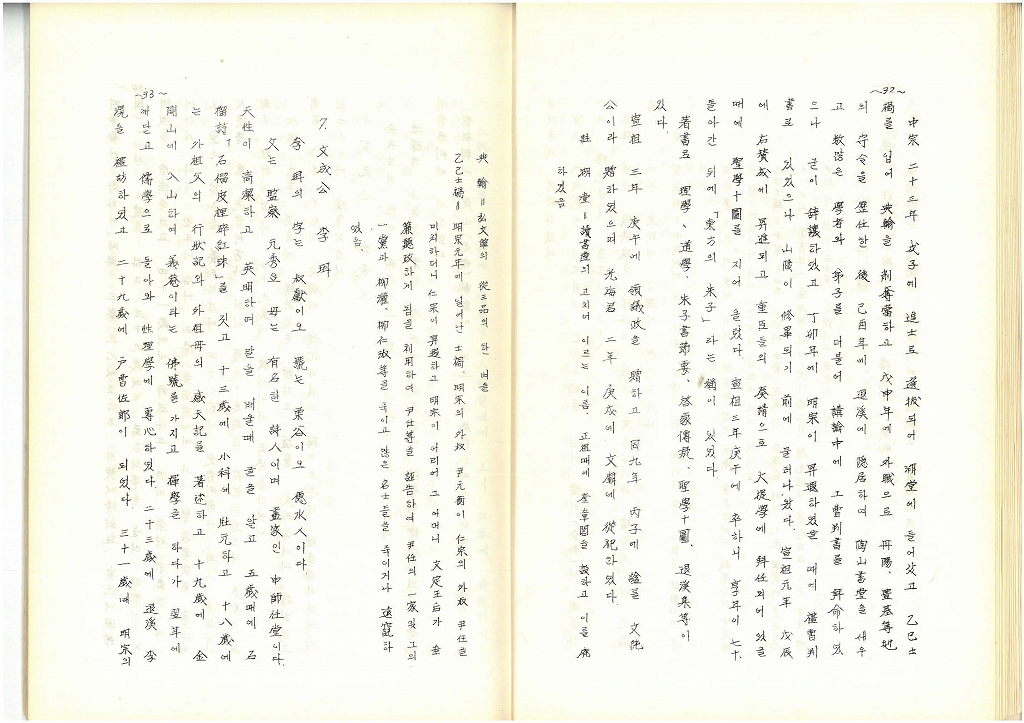 ~92~
中宗 二十三年 戊子에 進士로 選拔되어 湖堂에 들어갔고 乙巳士
禍를 입어 典翰을 削奪當하고 戊申年에 外職으로 丹陽、豊基等地
의 守令을 歷任한 後 己酉年에 退溪에 隱居하여 陶山書堂을 세우
고 數많은 學者와 弟子를 더불어 講論中에 工曹判書를 拜命하였
으나 굳이 辭讓하였고 丁卯年에 明宗이 昇遐하였을 때에 禮曹判
書로 있었으나 山陵이 修畢되기 前에 물러나왔다. 宣祖元年 戊辰
에 右贊成에 昇進되고 重臣들의 奏請으로 大提學에 拜任되어 있을
때에 聖學十圖를 지어 올렸다 宣祖三年庚午에 卒하니 享年이 七十
돌아간 뒤에「東方의 朱子」라는 稱이 있었다
著書로 理學、道學、朱子書節要、啓蒙傳疑、聖學十圖、退溪集等이
있다.
宣祖 三年 庚午에 領議政을 贈하고 同九年 丙子에 諡를 文純
公이라 贈하였으며 光海君 二年 庚戌에 文廟에 從祀하였다.
註 湖堂＝讀書堂의 고치어 이르는 이름. 正祖때에 奎章閣을 設하고 이를 廢
하였음
~93~
典翰＝弘文館의 從三品의 한 벼슬
乙巳士禍＝明宗元年에 일어난 士禍、明宗의 外叔 尹元衡이 仁宗의 外叔 尹任을
미워하더니 仁宗이 昇遐하고 明宗이 어리어 그 어머니 文定王后가 垂
簾聽政하게 됨을 利用하여 尹任等을 誣告하여 尹任의 一家 및 그의
一黨과 柳灌、柳仁淑等을 죽이고 많은 名士들을 죽이거나 遠竄하
였음.
7. 文成公 李珥
李珥의 字는 叔獻이오 號는 栗谷이오 德水人이다.
父는 監察 元秀오 母는 有名한 詩人이며 畫家인 申師任堂이다.
天性이 高潔하고 英明하여 말을 배울때 글을 알고 五歲때에 石
榴詩「石榴皮裡碎紅珠」를 짓고 十三歲에 小科에 壯元하고 十八歲에
는 外祖父의 行狀記와 外祖母의 感天記를 著述하고 十九歲에 金
剛山에 入山하여 義菴이라는 佛號를 가지고 禪學을 하다가 翌年에
깨닫고 儒學으로 돌아와 性理學에 專心하였다. 二十三歲에 退溪 李
滉을 尋訪하였고 二十九歲에 戶曹佐郞이 되었다 三十一歲때 明宗의